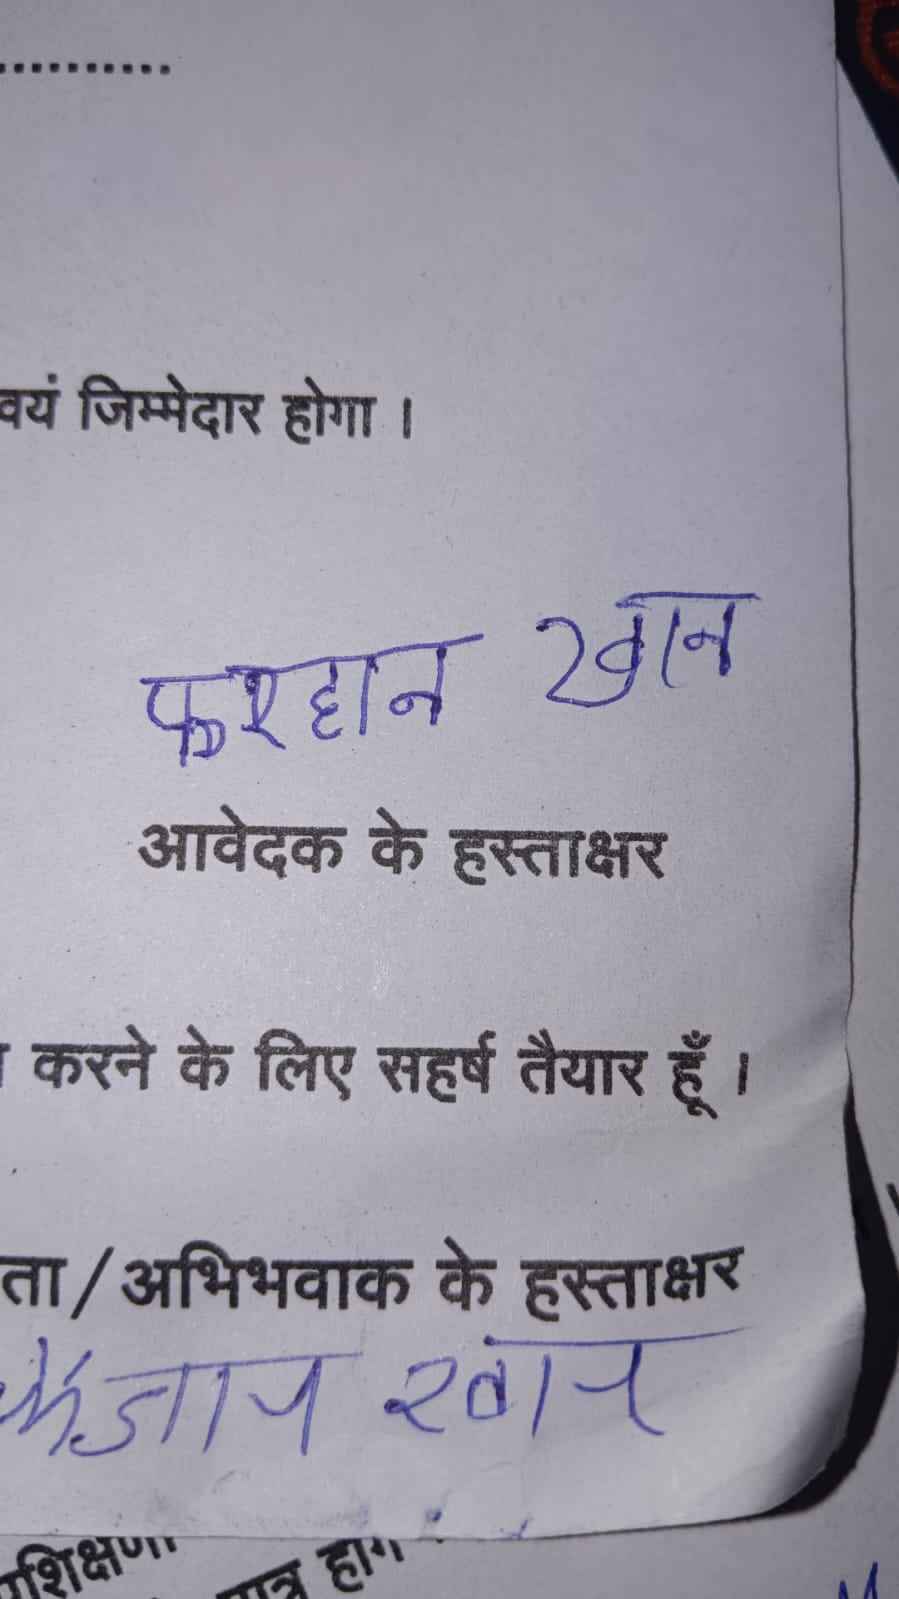 ..........
वयं जिम्मेदार होगा ।
फरहान खान
आवेदक के हस्ताक्षर
करने के लिए सहर्ष तैयार हूँ ।
ता / अभिभवाक के हस्ताक्षर
खान